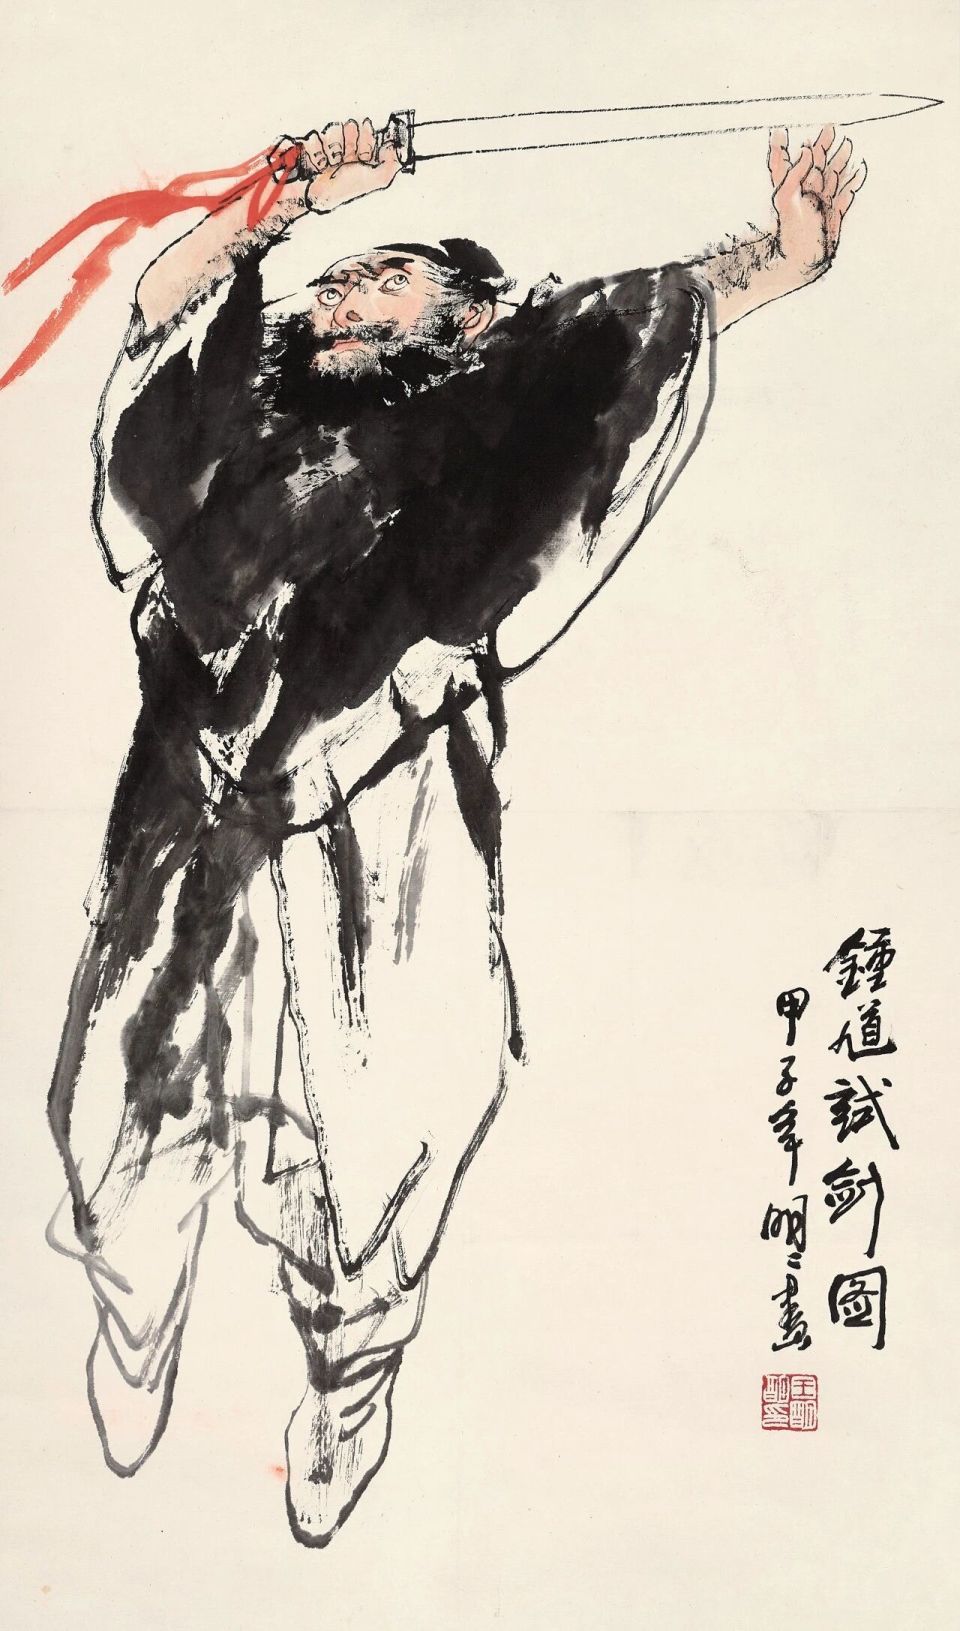 鍾馗試剑图
甲子年明〻畫
王明明印